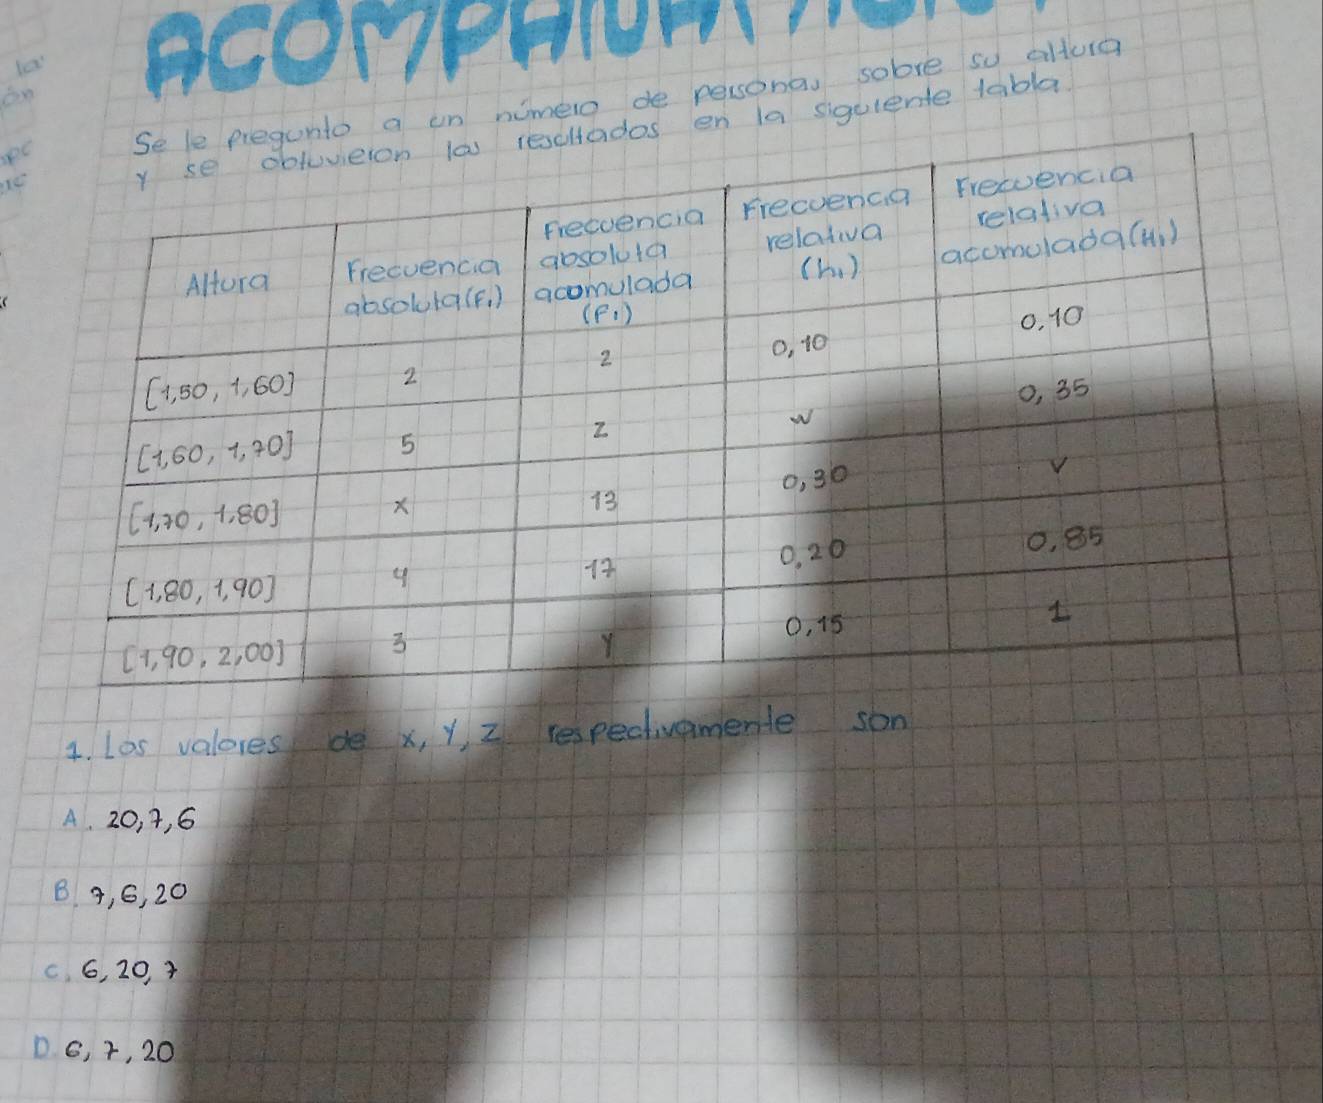 Se le pregunto a un número de personas sobre su altura
y se obtuvieron los resultados en la siguiente tabla.
Altura Frecuencia absoluta(F₁) Frecuencia absoluta acomulada (F₁) Frecuencia relativa (h₁) Frecuencia relativa acomulada(H₁)
[1,50, 1,60] 2 2 0,10 0,10
[1,60, 1,70] 5 z w 0,35
[1,70, 1,80] x 13 0,30 v
[1,80, 1,90] 4 17 0,20 0,85
[1,90, 2,00] 3 Y 0,15 1
1. Los valores de x, Y, z respectivamente son
A. 20,7,6
B. 7,6,20
C. 6,20,7
D. 6,7,20